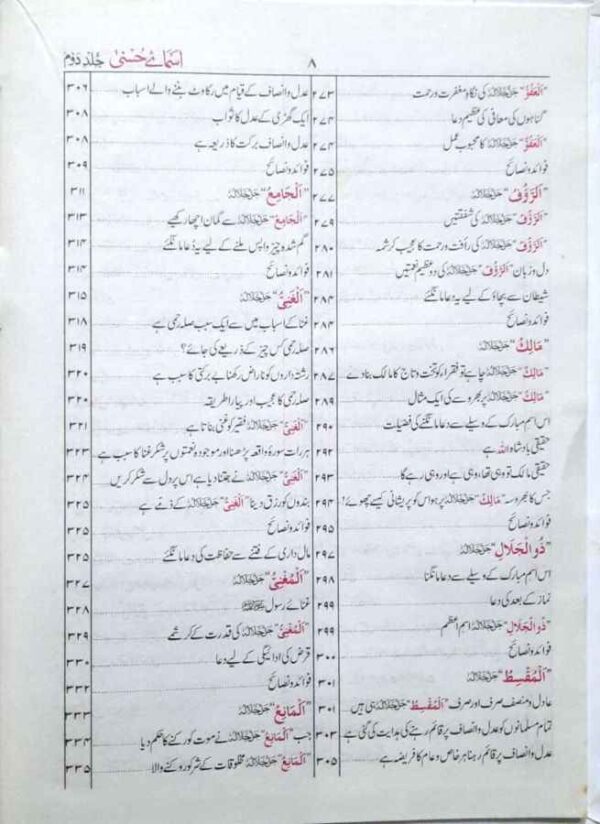 اَسمائے حُسنیٰ جُلد دَوم
۸
"اَلْعَفُوُّ" جَلَّ جَلَالُہٗ کی نگاہِ مغفرت و رحمت ۲۷۳
گناہوں کی معافی کی عظیم دعا ۲۷۴
"اَلْعَفُوُّ" جَلَّ جَلَالُہٗ کا محبوب عمل ۲۷۴
فوائد و نصائح ۲۷۵
"اَلرَّؤُفُ" جَلَّ جَلَالُہٗ ۲۷۷
"اَلرَّؤُفُ" جَلَّ جَلَالُہٗ کی شفقتیں ۲۷۹
"اَلرَّؤُفُ" جَلَّ جَلَالُہٗ کی رأفت و رحمت کا عجیب کرشمہ ۲۸۰
دل و زبان "اَلرَّؤُفُ" جَلَّ جَلَالُہٗ کی دو عظیم نعمتیں ۲۸۱
شیطان سے بچاؤ کے لیے یہ دعا مانگئے ۲۸۴
فوائد و نصائح ۲۸۴
"مَالِكُ" جَلَّ جَلَالُہٗ ۲۸۶
"مَالِكُ" جَلَّ جَلَالُہٗ چاہے تو فقراء کو تخت و تاج کا مالک بنا دے ۲۸۷
"مَالِكُ" جَلَّ جَلَالُہٗ پر بھروسے کی ایک مثال ۲۸۹
اس اسم مبارک کے وسیلے سے دعا مانگنے کی فضیلت ۲۹۰
حقیقی بادشاہ اللہ ہے ۲۹۲
حقیقی مالک تو وہی تھا، وہی ہے اور وہی رہے گا ۲۹۳
جس کا بھروسہ "مَالِكُ" جَلَّ جَلَالُہٗ پر ہو اس کو پریشانی کیسے چھوئے! ۲۹۴
فوائد و نصائح ۲۹۵
"ذُو الْجَلَالِ" جَلَّ جَلَالُہٗ ۲۹۷
اس اسم مبارک کے وسیلے سے دعا مانگنا ۲۹۸
نماز کے بعد کی دعا ۲۹۹
"ذُو الْجَلَالِ" جَلَّ جَلَالُہٗ اسم اعظم ۲۹۹
فوائد و نصائح ۳۰۰
"اَلْمُقْسِطُ" جَلَّ جَلَالُہٗ ۳۰۱
عادل و منصف صرف اور صرف "اَلْمُقْسِطُ" جَلَّ جَلَالُہٗ ہی ہیں ۳۰۱
تمام مسلمانوں کو عدل و انصاف پر قائم رہنے کی ہدایت کی گئی ہے ۳۰۳
عدل و انصاف پر قائم رہنا ہر خاص و عام کا فریضہ ہے ۳۰۵
عدل و انصاف کے قیام میں رکاوٹ بننے والے اسباب ۳۰۶
ایک گھڑی کے عدل کا ثواب ۳۰۸
عدل و انصاف برکت کا ذریعہ ہے ۳۰۸
فوائد و نصائح ۳۰۹
"اَلْجَامِعُ" جَلَّ جَلَالُہٗ ۳۱۱
"اَلْجَامِعُ" جَلَّ جَلَالُہٗ سے گمان اچھا رکھیے ۳۱۳
گم شدہ چیز واپس ملنے کے لیے یہ دعا مانگئے ۳۱۴
فوائد و نصائح ۳۱۴
"اَلْغَنِیُّ" جَلَّ جَلَالُہٗ ۳۱۵
غنا کے اسباب میں سے ایک سبب صلہ رحمی ہے ۳۱۸
صلہ رحمی کس چیز کے ذریعے کی جائے؟ ۳۱۹
رشتہ داروں کو ناراض رکھنا بے برکتی کا سبب ہے ۳۲۰
صلہ رحمی کا عجیب اور پیارا طریقہ ۳۲۰
"اَلْغَنِیُّ" جَلَّ جَلَالُہٗ فقیر کو غنی بناتا ہے ۳۲۱
ہر رات سورۂ واقعہ پڑھنا اور موجودہ نعمتوں پر شکر غنا کا سبب ہے ۳۲۳
"اَلْغَنِیُّ" جَلَّ جَلَالُہٗ نے جتنا دیا ہے اس پر دل سے شکر کریں ۳۲۴
بندوں کو رزق دینا "اَلْغَنِیُّ" جَلَّ جَلَالُہٗ کے ذمے ہے ۳۲۵
فوائد و نصائح ۳۲۵
مال داری کے فتنے سے حفاظت کی دعا مانگئے ۳۲۵
"اَلْمُغْنِیُّ" جَلَّ جَلَالُہٗ ۳۲۷
غنائے رسول ﷺ ۳۲۸
"اَلْمُغْنِیُّ" جَلَّ جَلَالُہٗ کی قدرت کے کرشمے ۳۲۹
قرض کی ادائیگی کے لیے دعا ۳۳۰
فوائد و نصائح ۳۳۲
"اَلْمَانِعُ" جَلَّ جَلَالُہٗ ۳۳۳
جب "اَلْمَانِعُ" جَلَّ جَلَالُہٗ نے موت کو رکنے کا حکم دیا ۳۳۴
"اَلْمَانِعُ" جَلَّ جَلَالُہٗ مخلوقات کے شر کو روکنے والا ۳۳۵